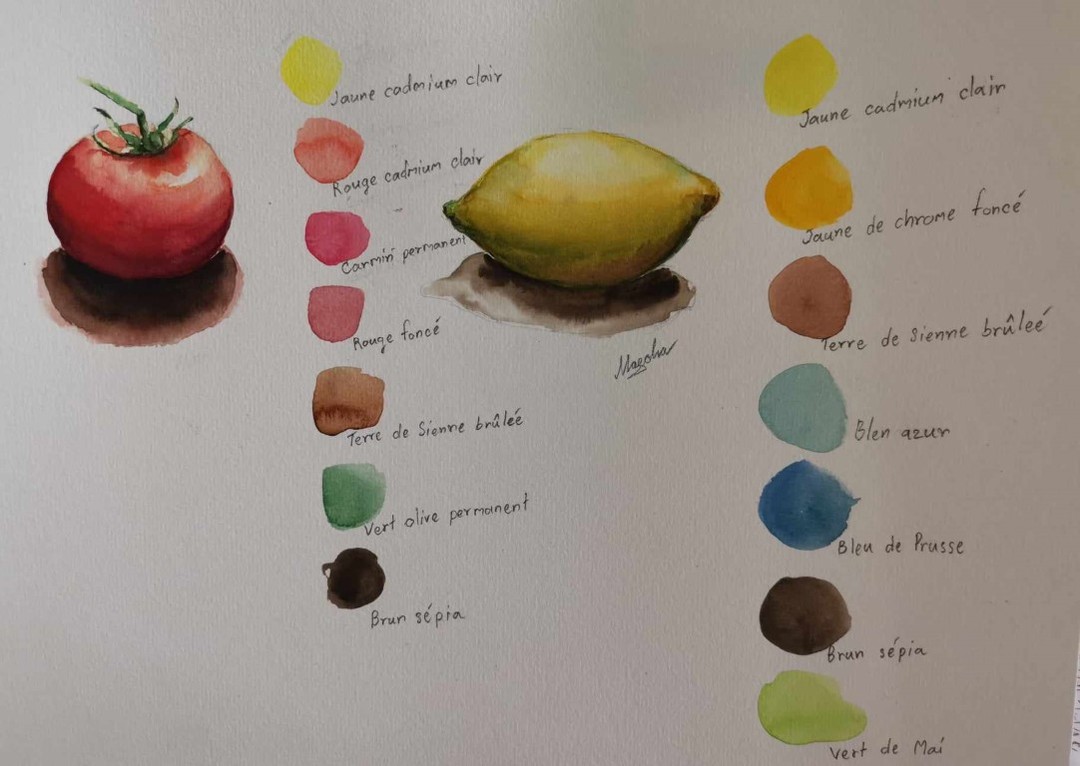 Jaune cadmium clair
Rouge cadmium clair
Carmin permanent
Rouge foncé
Terre de Sienne brûleé
Vert olive permanent
Brun sépia
Jaune cadmium clair
Jaune de chrome foncé
Terre de Sienne brûleé
Bleu azur
Bleu de Prusse
Brun sépia
Vert de Maí